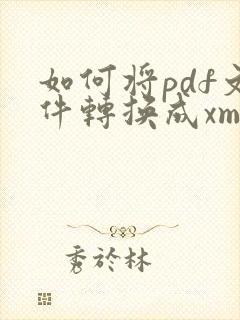 如何將pdf文
件轉換成xm
秀於林